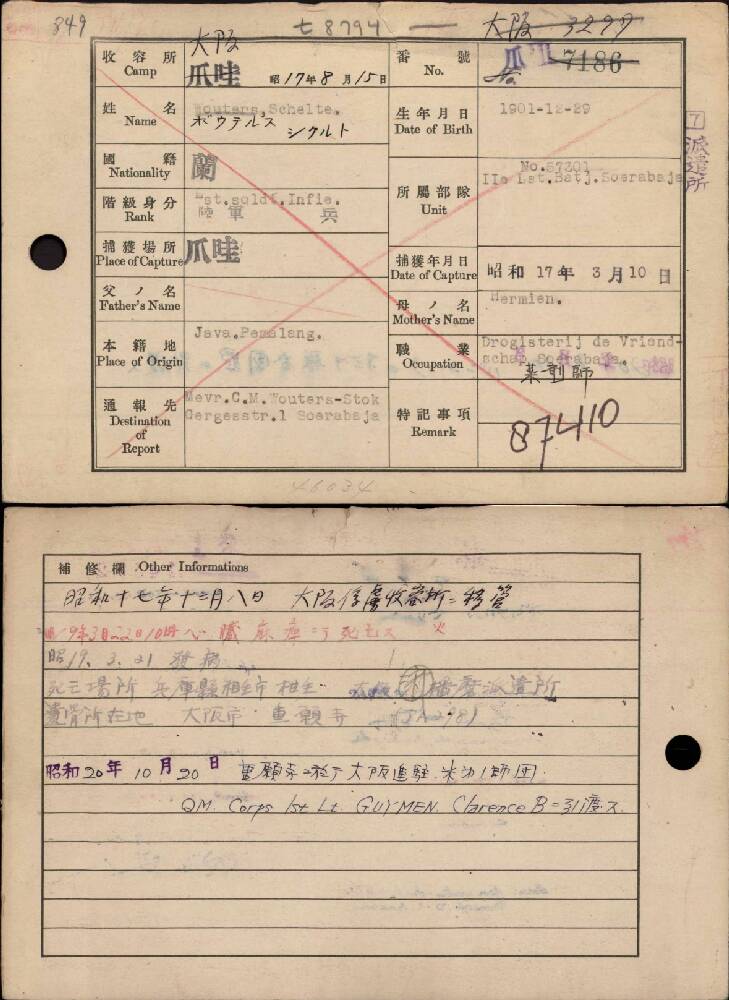 849
七8794 — 大阪 3297
收容所
Camp
大阪
爪哇 昭17年8月15日
番號
No.
爪II 7186
姓名
Name
Wouters, Schelte.
ボウテルス
シケルト
生年月日
Date of Birth
1901-12-29
7 派遣所
國籍
Nationality
蘭
所屬部隊
Unit
No.57301
IIe Lst.Batj.Soerabaja
階級身分
Rank
Lst.sold.Infie.
陸軍 兵
捕獲場所
Place of Capture
爪哇
捕獲年月日
Date of Capture
昭和17年3月10日
父ノ名
Father's Name
母ノ名
Mother's Name
Hermien.
本籍地
Place of Origin
Java, Pemalang.
職業
Occupation
Drogisterij de Vriend-
schap Soerabaja.
薬剤師
通報先
Destination
of
Report
Mevr.C.M.Wouters-Stok
Gergesstr.1 Soerabaja
特記事項
Remark
87410
46034
補修欄 Other Informations
昭和十七年十二月八日 大阪俘虜收容所ニ移管
昭19年3月22日10時 心臓麻痺ニテ死亡ス 火
昭19.3.21 發病
死亡場所 兵庫縣相生市相生 播磨派遣所
遺骨所在地 大阪市
昭和20年10月20日 大阪進駐米
QM. Corps 1st Lt. GUYMEN. Clarence B ニ引渡ス.